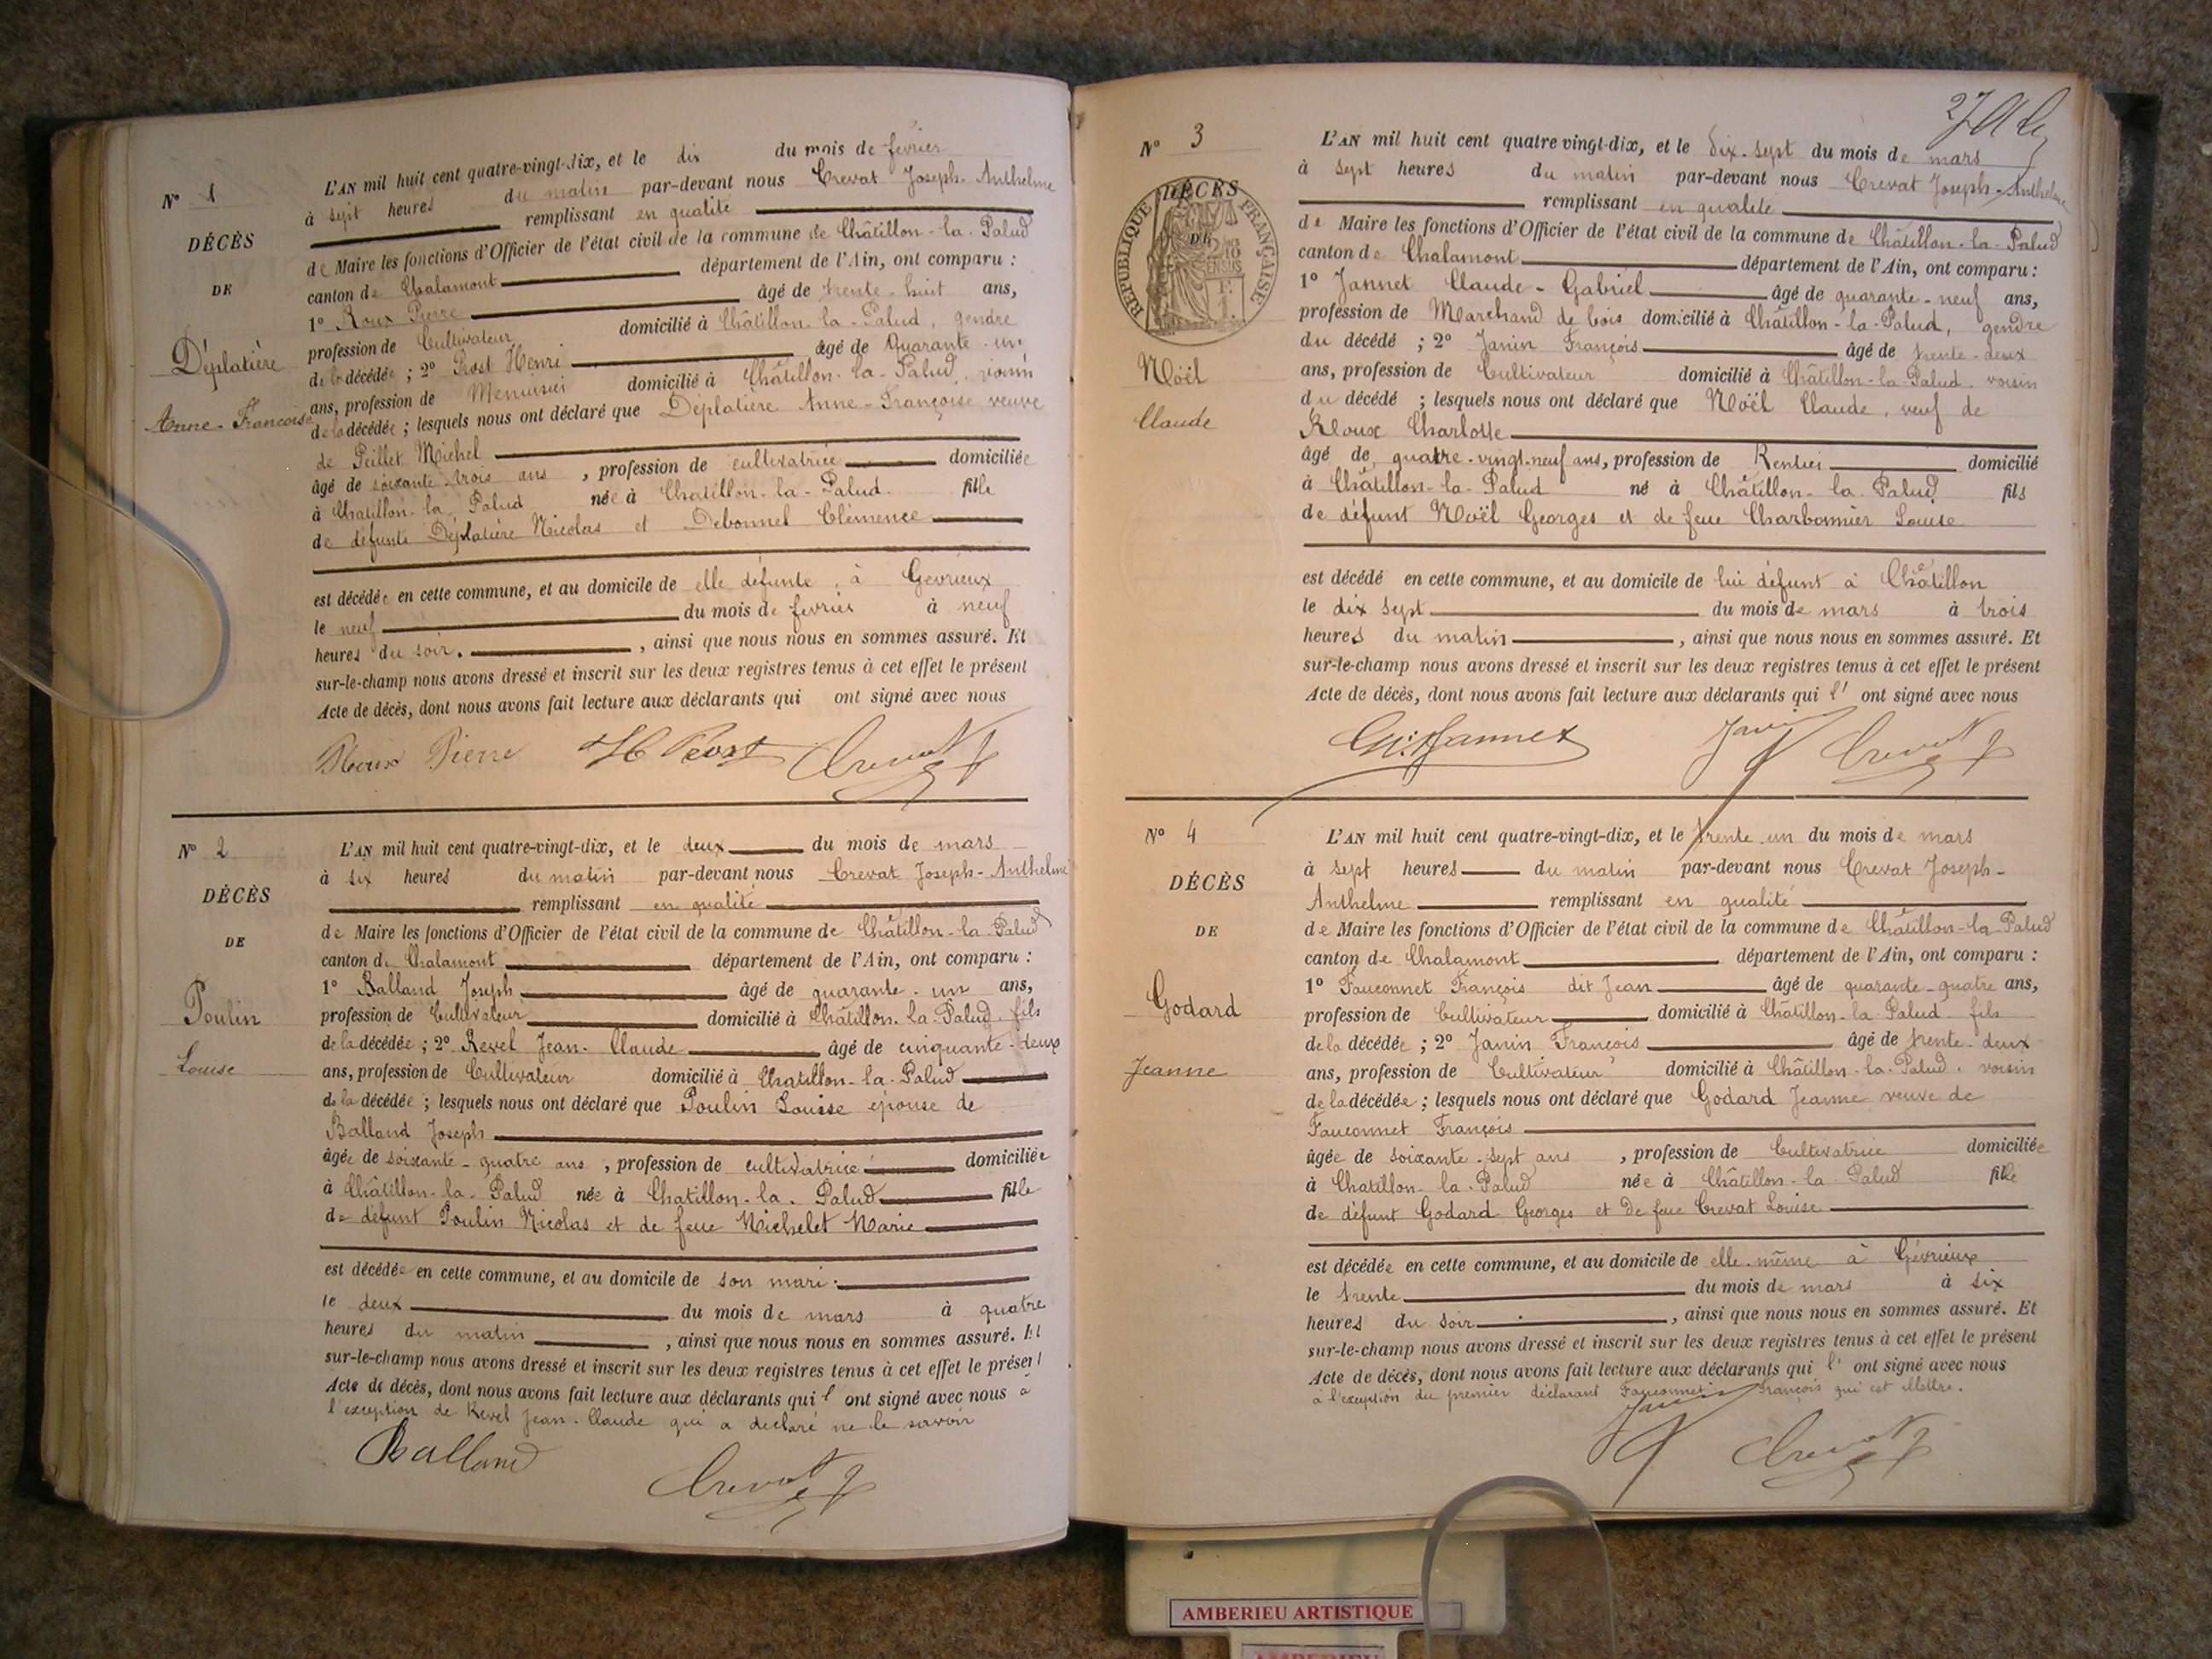 N° 1
DÉCÈS
DE
Déplatière
Anne-Françoise
L'AN mil huit cent quatre-vingt-dix, et le dix du mois de février
à sept heures du matin par-devant nous Crevat Joseph-Anthelme
remplissant en qualité
de Maire les fonctions d'Officier de l'état civil de la commune de Châtillon-la-Palud
canton de Chalamont département de l'Ain, ont comparu :
1° Roux Pierre âgé de trente-huit ans,
profession de Cultivateur domicilié à Châtillon-la-Palud, gendre
de la décédée ; 2° Prost Henri âgé de Quarante-un
ans, profession de Menuisier domicilié à Châtillon-la-Palud, voisin
de la décédée ; lesquels nous ont déclaré que Déplatière Anne-Françoise veuve
de Peillet Michel
âgé de soixante-trois ans , profession de cultivatrice domiciliée
à Chatillon-la-Palud née à Chatillon-la-Palud. fille
de defunts Déplatière Nicolas et Debonnel Clémence
est décédée en cette commune, et au domicile de elle défunte, à Gevrieux
le neuf du mois de fevrier à neuf
heures du soir. , ainsi que nous nous en sommes assuré. Et
sur-le-champ nous avons dressé et inscrit sur les deux registres tenus à cet effet le présent
Acte de décès, dont nous avons fait lecture aux déclarants qui ont signé avec nous
Roux Pierre H Prost Crevat
N° 2
DÉCÈS
DE
Poulin
Louise
L'AN mil huit cent quatre-vingt-dix, et le deux du mois de mars
à six heures du matin par-devant nous Crevat Joseph-Anthelme
remplissant en qualité
de Maire les fonctions d'Officier de l'état civil de la commune de Châtillon-la-Palud
canton de Chalamont département de l'Ain, ont comparu :
1° Balland Joseph âgé de quarante-un ans,
profession de Cultivateur domicilié à Châtillon-la-Palud. fils
de la décédée ; 2° Revel Jean-Claude âgé de cinquante-deux
ans, profession de Cultivateur domicilié à Chatillon-la-Palud
de la décédée ; lesquels nous ont déclaré que Poulin Louise épouse de
Balland Joseph
âgée de soixante-quatre ans , profession de cultivatrice domiciliée
à Châtillon-la-Palud née à Chatillon-la-Palud fille
de défunt Poulin Nicolas et de feue Michelet Marie
est décédée en cette commune, et au domicile de son mari.
le deux du mois de mars à quatre
heures du matin , ainsi que nous nous en sommes assuré. Et
sur-le-champ nous avons dressé et inscrit sur les deux registres tenus à cet effet le présent
Acte de décès, dont nous avons fait lecture aux déclarants qui l' ont signé avec nous à
l'exception de Revel Jean-Claude qui a déclaré ne le savoir
Balland Crevat
27
N° 3
DÉCÈS
DE
RÉPUBLIQUE FRANÇAISE
Noël
Claude
L'AN mil huit cent quatre vingt-dix, et le dix-sept du mois de mars
à sept heures du matin par-devant nous Crevat Joseph-Anthelme
remplissant en qualité
de Maire les fonctions d'Officier de l'état civil de la commune de Châtillon-la-Palud
canton de Chalamont département de l'Ain, ont comparu :
1° Jannet Claude-Gabriel âgé de quarante-neuf ans,
profession de Marchand de bois domicilié à Châtillon-la-Palud, gendre
du décédé ; 2° Janin François âgé de trente-deux
ans, profession de Cultivateur domicilié à Châtillon-la-Palud. voisin
du décédé ; lesquels nous ont déclaré que Noël Claude, veuf de
Roux Charlotte
âgé de quatre-vingt-neuf ans, profession de Rentier domicilié
à Châtillon-la-Palud né à Châtillon-la-Palud fils
de défunt Noël Georges et de feue Charbonnier Louise
est décédé en cette commune, et au domicile de lui défunt à Châtillon
le dix sept du mois de mars à trois
heures du matin , ainsi que nous nous en sommes assuré. Et
sur-le-champ nous avons dressé et inscrit sur les deux registres tenus à cet effet le présent
Acte de décès, dont nous avons fait lecture aux déclarants qui l' ont signé avec nous
Jannet Janin Crevat
N° 4
DÉCÈS
DE
Godard
Jeanne
L'AN mil huit cent quatre-vingt-dix, et le trente-un du mois de mars
à sept heures du matin par-devant nous Crevat Joseph-
Anthelme remplissant en qualité
de Maire les fonctions d'Officier de l'état civil de la commune de Châtillon-la-Palud
canton de Chalamont département de l'Ain, ont comparu :
1° Fauconnet François dit Jean âgé de quarante-quatre ans,
profession de Cultivateur domicilié à Châtillon-la-Palud. fils
de la décédée ; 2° Janin François âgé de trente-deux
ans, profession de Cultivateur domicilié à Châtillon-la-Palud. voisin
de la décédée ; lesquels nous ont déclaré que Godard Jeanne veuve de
Fauconnet François
âgée de soixante-sept ans , profession de Cultivatrice domiciliée
à Chatillon-la-Palud née à Châtillon-la-Palud fille
de défunt Godard Georges et De feue Crevat Louise
est décédée en cette commune, et au domicile de elle-même à Gévrieux
le trente du mois de mars à six
heures du soir , ainsi que nous nous en sommes assuré. Et
sur-le-champ nous avons dressé et inscrit sur les deux registres tenus à cet effet le présent
Acte de décès, dont nous avons fait lecture aux déclarants qui l' ont signé avec nous
à l'exception du premier déclarant Fauconnet François qui est illettré.
Janin Crevat
AMBERIEU ARTISTIQUE
AMBERIEU